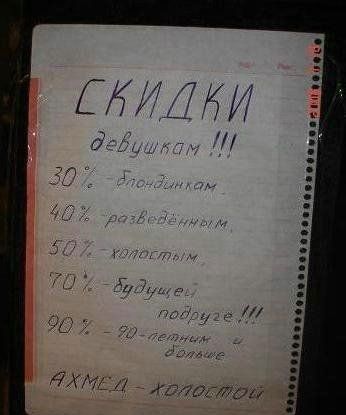 СКИДКИ
девушкам !!!
30% - блондинкам,
40% - разведённым,
50% - холостым,
70% - будущей
подруге!!!
90% - 90-летним и
больше
АХМЕД - ХОЛОСТОЙ